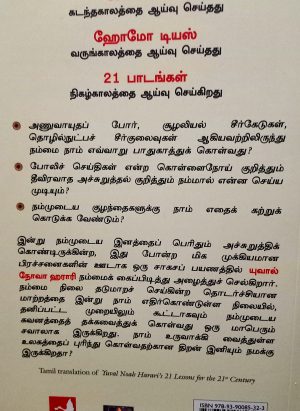 கடந்தகாலத்தை ஆய்வு செய்தது
ஹோமோ டியஸ்
வருங்காலத்தை ஆய்வு செய்தது
21 பாடங்கள்
நிகழ்காலத்தை ஆய்வு செய்கிறது
அணுவாயுதப் போர், சூழலியல் சீர்கேடுகள்,
தொழில்நுட்பச் சீர்குலைவுகள் ஆகியவற்றிலிருந்து
நம்மை நாம் எவ்வாறு பாதுகாத்துக் கொள்வது?
போலிச் செய்திகள் என்ற கொள்ளைநோய் குறித்தும்
தீவிரவாத அச்சுறுத்தல் குறித்தும் நம்மால் என்ன செய்ய
முடியும்?
நம்முடைய குழந்தைகளுக்கு நாம் எதைக் கற்றுக்
கொடுக்க வேண்டும்?
இன்று நம்முடைய இனத்தைப் பெரிதும் அச்சுறுத்திக்
கொண்டிருக்கின்ற, இது போன்ற மிக முக்கியமான
பிரச்சனைகளின் ஊடாக ஒரு சாகசப் பயணத்தில் யுவால்
நோவா ஹராரி நம்மைக் கைப்பிடித்து அழைத்துச் செல்கிறார்.
நம்மை நிலை தடுமாறச் செய்கின்ற தொடர்ச்சியான
மாற்றத்தை இன்று நாம் எதிர்கொண்டுள்ள நிலையில்,
தனிப்பட்ட முறையிலும் கூட்டாகவும் நம்முடைய
கவனத்தைத் தக்கவைத்துக் கொள்வது ஒரு மாபெரும்
சவாலாக இருக்கிறது. நாம் உருவாக்கி வைத்துள்ள
உலகத்தைப் புரிந்து கொள்வதற்கான திறன் இனியும் நமக்கு
இருக்கிறதா?
Tamil translation of Yuval Noah Harari's 21 Lessons for the 21st Century
ISBN 978-93-90085-32-3